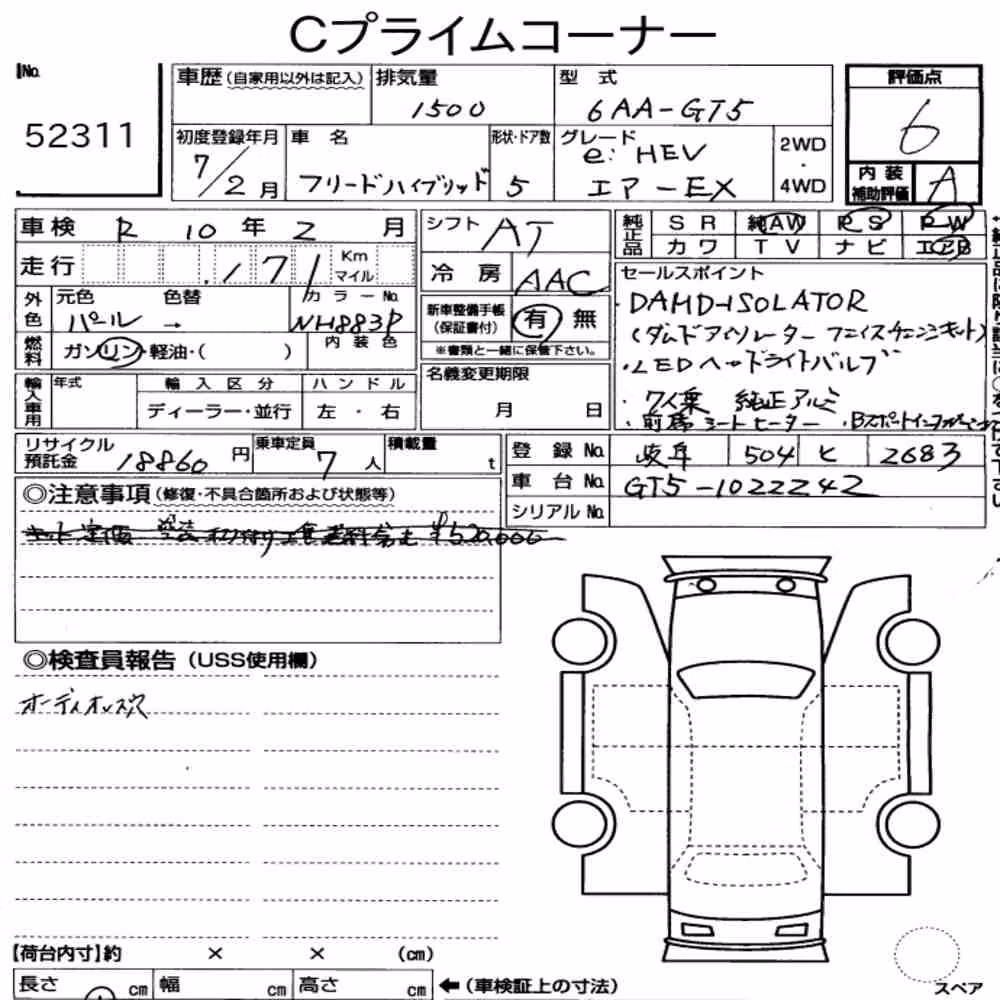 Cプライムコーナー
No.
52311
車歴 (自家用以外は記入)
排気量
1500
型式
6AA-GT5
評価点
6
初度登録年月
7/2月
車名
フリードハイブリッド
形状・ドア数
5
グレード
e:HEV
エアーEX
2WD
・
4WD
内装
補助評価
A
車検 R 10年 2月
シフト AT
純正品
SR 純AW PS PW
カワ TV ナビ エアB
走行 171 Km マイル
冷房 AAC
セールスポイント
・DAMD-ISOLATOR
(ダムドアイソレーター フェイスチェンジキット)
・LEDヘッドライトバルブ
・7人乗 純正アルミ
・前席シートヒーター
外色
元色 色替 カラーNo.
パール → NH883P
新車整備手帳
(保証書付)
有 無
※書類と一緒に保管下さい。
燃料
ガソリン・軽油・( )
内装色
名義変更期限
月 日
輸入車用
年式 輸入区分 ハンドル
ディーラー・並行 左・右
リサイクル
預託金
18860円
乗車定員
7人
積載量
t
登録No. 岐阜 504 ヒ 2683
車台No. GT5-1022242
シリアルNo.
◎注意事項(修復・不具合箇所および状態等)
◎検査員報告 (USS使用欄)
オーディオレス穴
【荷台内寸】約 × × (cm)
長さ cm 幅 cm 高さ cm ←(車検証上の寸法)
スペア